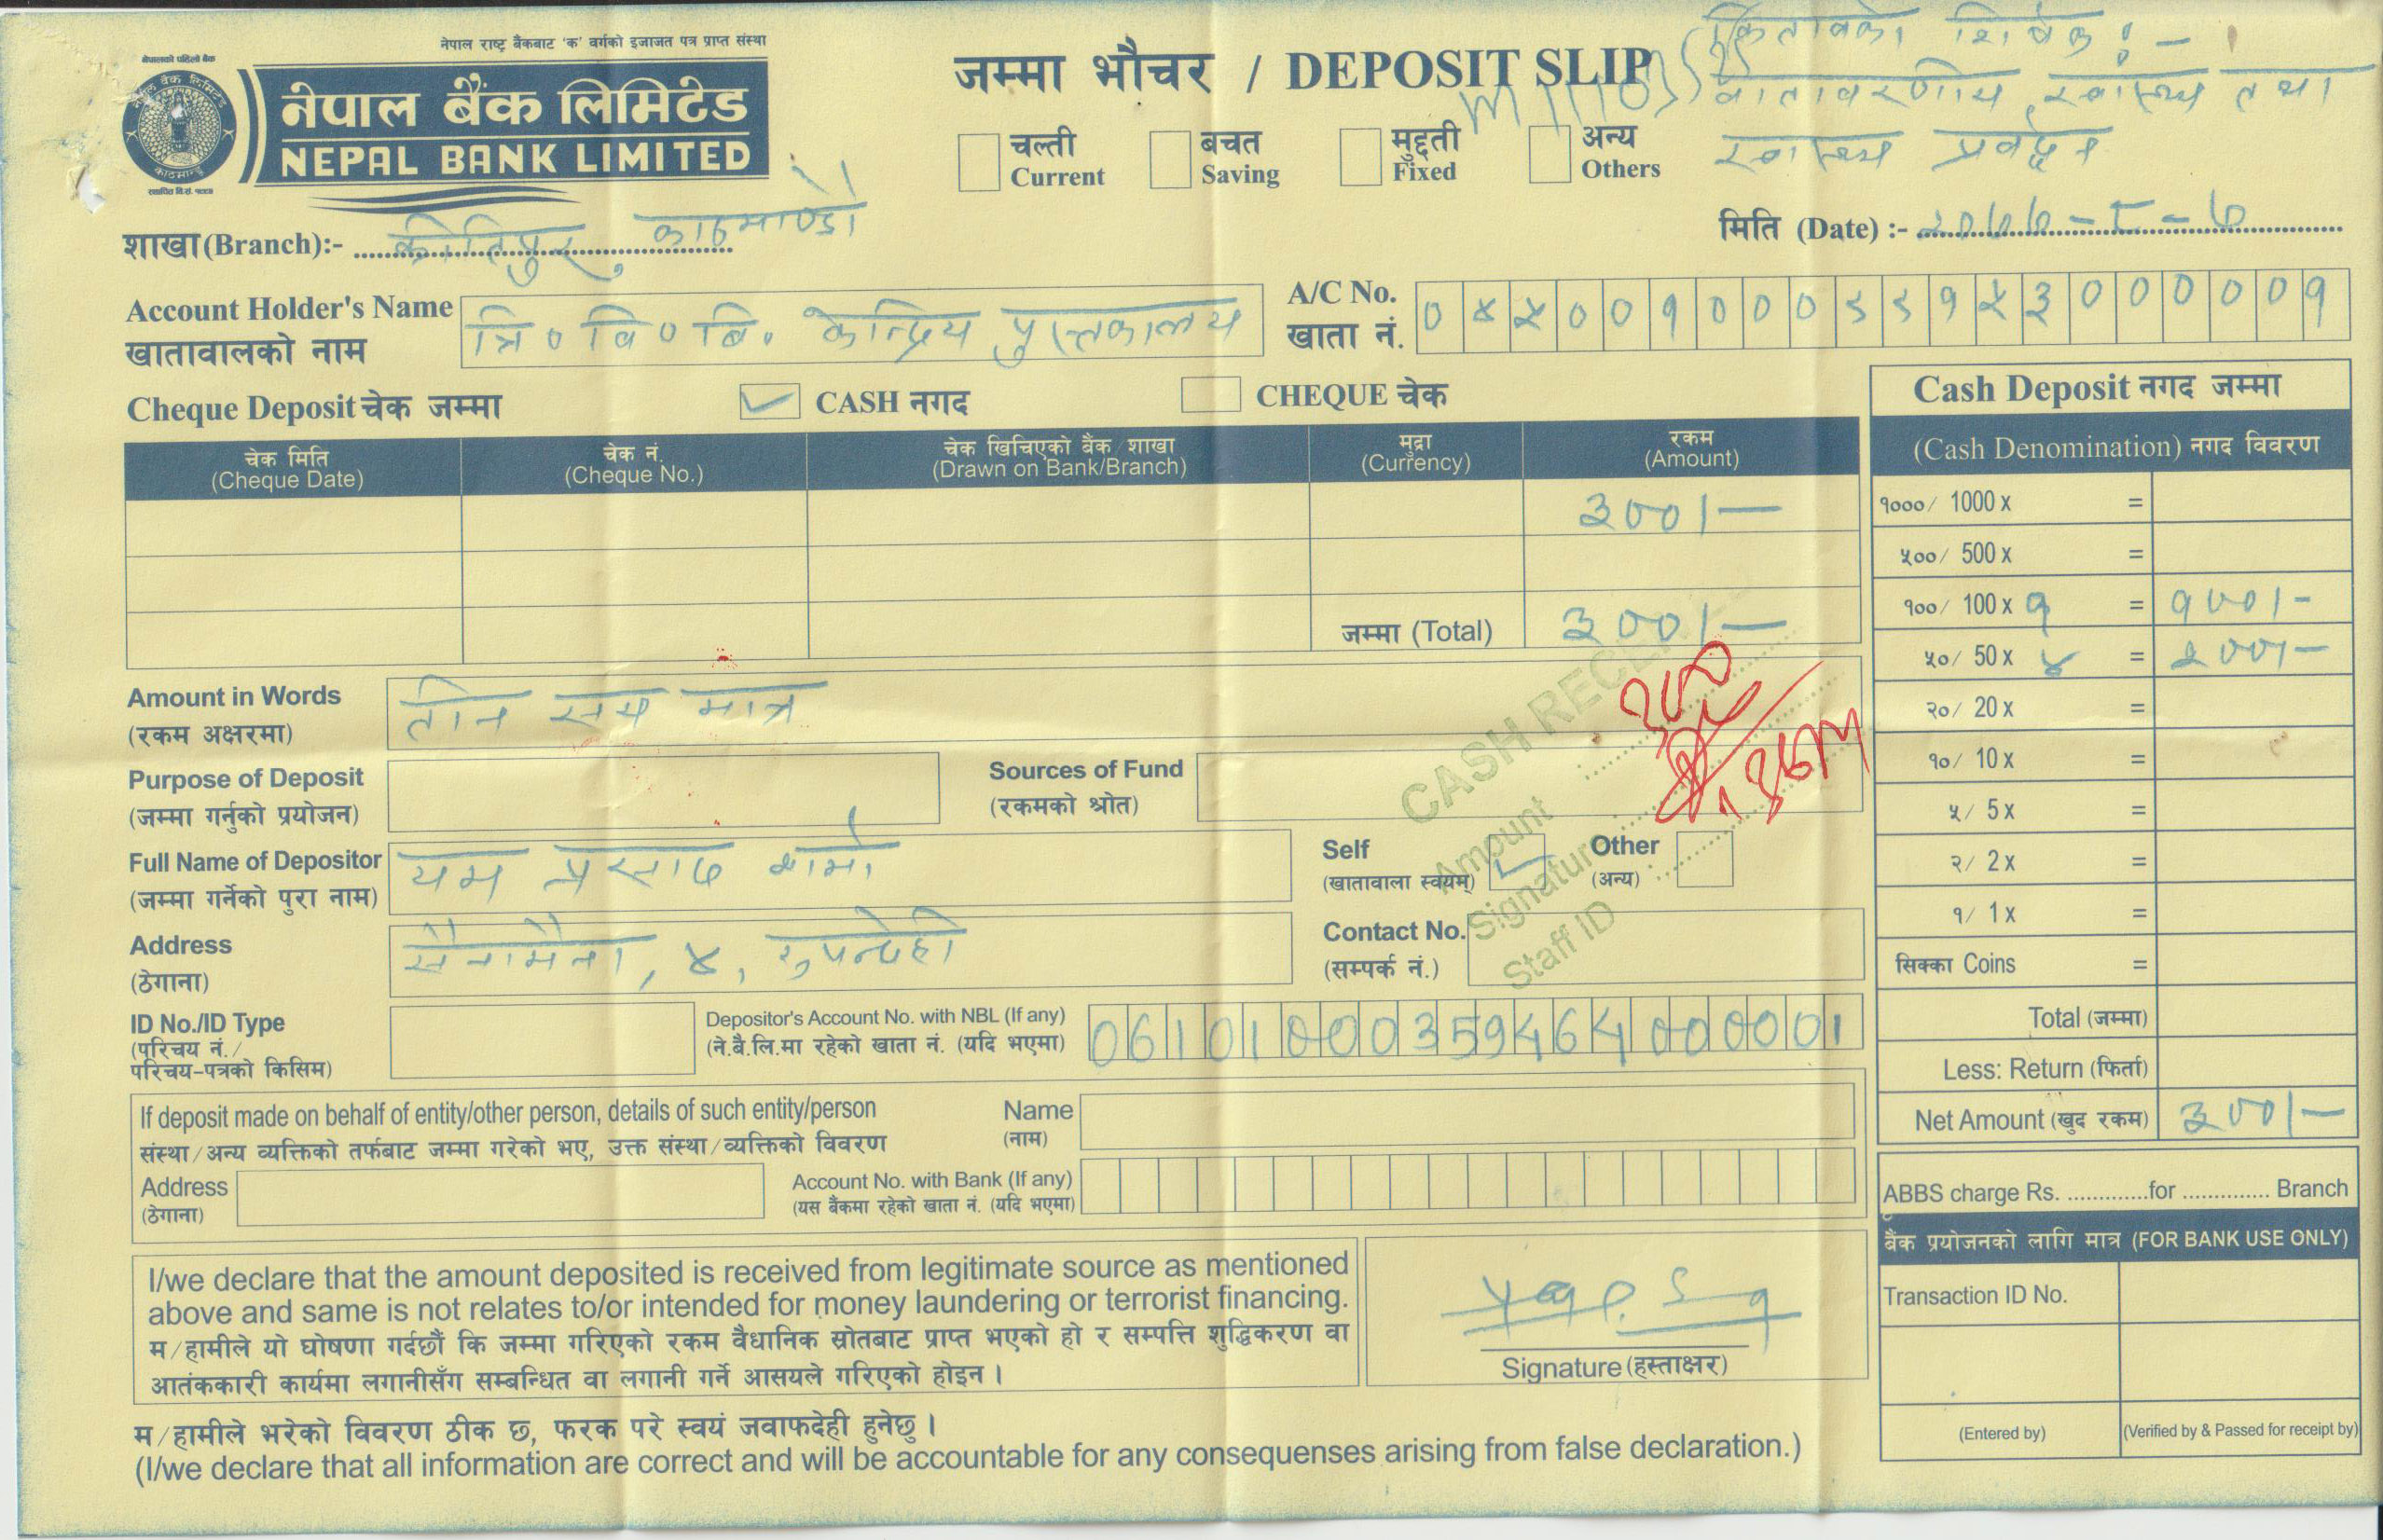 नेपाल राष्ट्र बैंकबाट 'क' वर्गको इजाजत पत्र प्राप्त संस्था
नेपालको पहिलो बैंक
नेपाल बैंक लिमिटेड
NEPAL BANK LIMITED
जम्मा भौचर / DEPOSIT SLIP
किताबको शिर्षक :-
वातावरणीय स्वास्थ्य तथा
स्वास्थ्य प्रवर्द्धन
चल्ती Current
बचत Saving
मुद्दती Fixed
अन्य Others
शाखा (Branch):- कीर्तिपुर, काठमाण्डौ
मिति (Date) :- २०७७-८-७
Account Holder's Name
खातावालको नाम
त्रि० वि० बि० केन्द्रिय पुस्तकालय
A/C No.
खाता नं.
०४५००१०००९९१५३०००००१
Cheque Deposit चेक जम्मा
CASH नगद
CHEQUE चेक
चेक मिति (Cheque Date)
चेक नं. (Cheque No.)
चेक खिचिएको बैंक शाखा (Drawn on Bank/Branch)
मुद्रा (Currency)
रकम (Amount)
३००।—
जम्मा (Total) ३००।—
Cash Deposit नगद जम्मा
(Cash Denomination) नगद विवरण
१०००/ 1000 x =
५००/ 500 x =
१००/ 100 x १ = १००।-
५०/ 50 x ४ = २००।-
२०/ 20 x =
१०/ 10 x =
५/ 5 x =
२/ 2 x =
१/ 1 x =
सिक्का Coins =
Total (जम्मा)
Less: Return (फिर्ता)
Net Amount (खुद रकम) ३००।—
Amount in Words
(रकम अक्षरमा)
तीन सय मात्र
Purpose of Deposit
(जम्मा गर्नुको प्रयोजन)
Sources of Fund
(रकमको श्रोत)
CASH RECE
Amount
Signature
Staff ID
३००
Full Name of Depositor
(जम्मा गर्नेको पुरा नाम)
यम प्रसाद शर्मा
Self
(खातावाला स्वयम्)
Other
(अन्य)
Address
(ठेगाना)
सैनामैना, ४, रुपन्देही
Contact No.
(सम्पर्क नं.)
ID No./ID Type
(परिचय नं./
परिचय-पत्रको किसिम)
Depositor's Account No. with NBL (If any)
(ने.बै.लि.मा रहेको खाता नं. (यदि भएमा)
06101000359464000001
If deposit made on behalf of entity/other person, details of such entity/person
संस्था/अन्य व्यक्तिको तर्फबाट जम्मा गरेको भए, उक्त संस्था/व्यक्तिको विवरण
Name
(नाम)
Address
(ठेगाना)
Account No. with Bank (If any)
(यस बैंकमा रहेको खाता नं. (यदि भएमा)
ABBS charge Rs. .............for .............. Branch
बैंक प्रयोजनको लागि मात्र (FOR BANK USE ONLY)
Transaction ID No.
(Entered by)
(Verified by & Passed for receipt by)
I/we declare that the amount deposited is received from legitimate source as mentioned
above and same is not relates to/or intended for money laundering or terrorist financing.
म/हामीले यो घोषणा गर्दछौं कि जम्मा गरिएको रकम वैधानिक स्रोतबाट प्राप्त भएको हो र सम्पत्ति शुद्धिकरण वा
आतंककारी कार्यमा लगानीसँग सम्बन्धित वा लगानी गर्ने आसयले गरिएको होइन ।
Signature (हस्ताक्षर)
म/हामीले भरेको विवरण ठीक छ, फरक परे स्वयं जवाफदेही हुनेछु ।
(I/we declare that all information are correct and will be accountable for any consequenses arising from false declaration.)